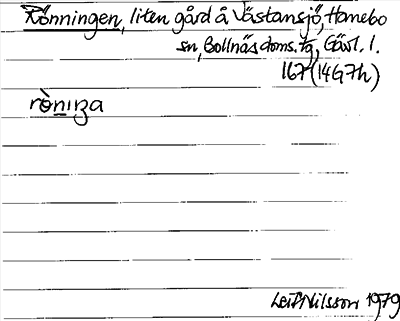 Rönningen, liten gård å Västansjö, Hanebo
sn, Bollnäs doms. tg, Gävl. l.
167 (14G7h)
rò̀nıŋa
Leif Nilsson 1979